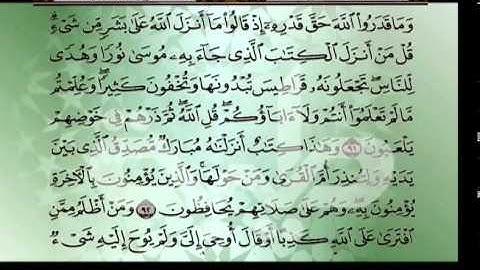 وَمَا قَدَرُوا۟ ٱللَّهَ حَقَّ قَدْرِهِۦٓ إِذْ قَالُوا۟ مَآ أَنزَلَ ٱللَّهُ عَلَىٰ بَشَرٍ مِّن شَىْءٍ ۗ
قُلْ مَنْ أَنزَلَ ٱلْكِتَـٰبَ ٱلَّذِى جَآءَ بِهِۦ مُوسَىٰ نُورًا وَهُدًى
لِّلنَّاسِ ۖ تَجْعَلُونَهُۥ قَرَاطِيسَ تُبْدُونَهَا وَتُخْفُونَ كَثِيرًا ۖ وَعُلِّمْتُم
مَّا لَمْ تَعْلَمُوٓا۟ أَنتُمْ وَلَآ ءَابَآؤُكُمْ ۖ قُلِ ٱللَّهُ ۖ ثُمَّ ذَرْهُمْ فِى خَوْضِهِمْ
يَلْعَبُونَ ٩١ وَهَـٰذَا كِتَـٰبٌ أَنزَلْنَـٰهُ مُبَارَكٌ مُّصَدِّقُ ٱلَّذِى بَيْنَ
يَدَيْهِ وَلِتُنذِرَ أُمَّ ٱلْقُرَىٰ وَمَنْ حَوْلَهَا ۚ وَٱلَّذِينَ يُؤْمِنُونَ بِٱلْـَٔاخِرَةِ
يُؤْمِنُونَ بِهِۦ ۖ وَهُمْ عَلَىٰ صَلَاتِهِمْ يُحَافِظُونَ ٩٢ وَمَنْ أَظْلَمُ مِمَّنِ
ٱفْتَرَىٰ عَلَى ٱللَّهِ كَذِبًا أَوْ قَالَ أُوحِىَ إِلَىَّ وَلَمْ يُوحَ إِلَيْهِ شَىْءٌ